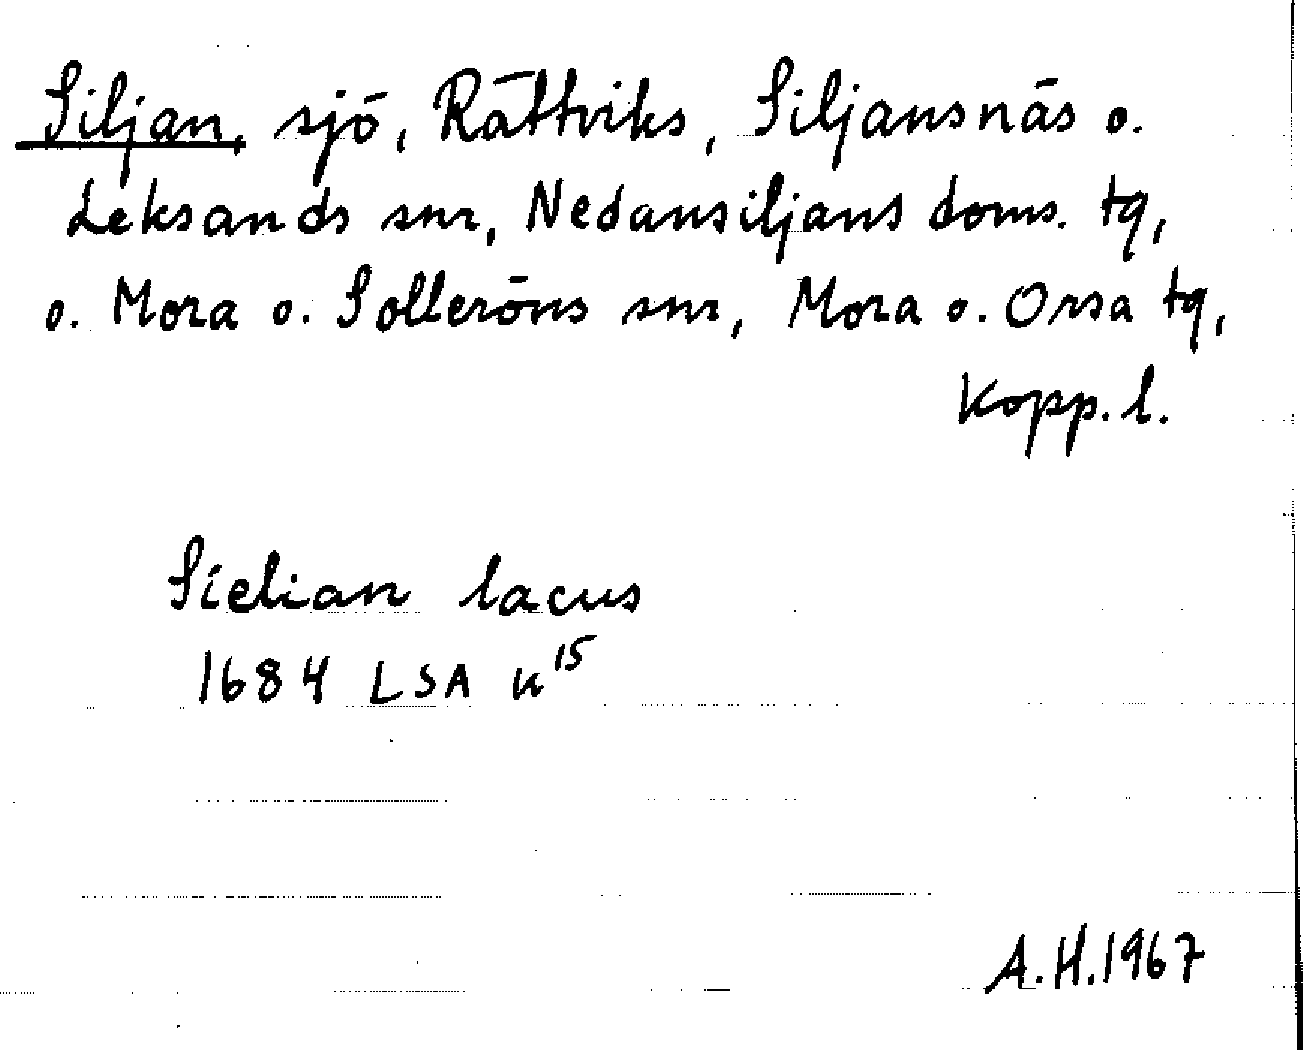 Siljan, sjö, Rättviks, Siljansnäs o.
Leksands snr, Nedansiljans doms. tg,
o. Mora o. Solleröns snr, Mora o. Orsa tg,
Kopp. l.
Sielian lacus
1684 LSA K15
A.H.1967